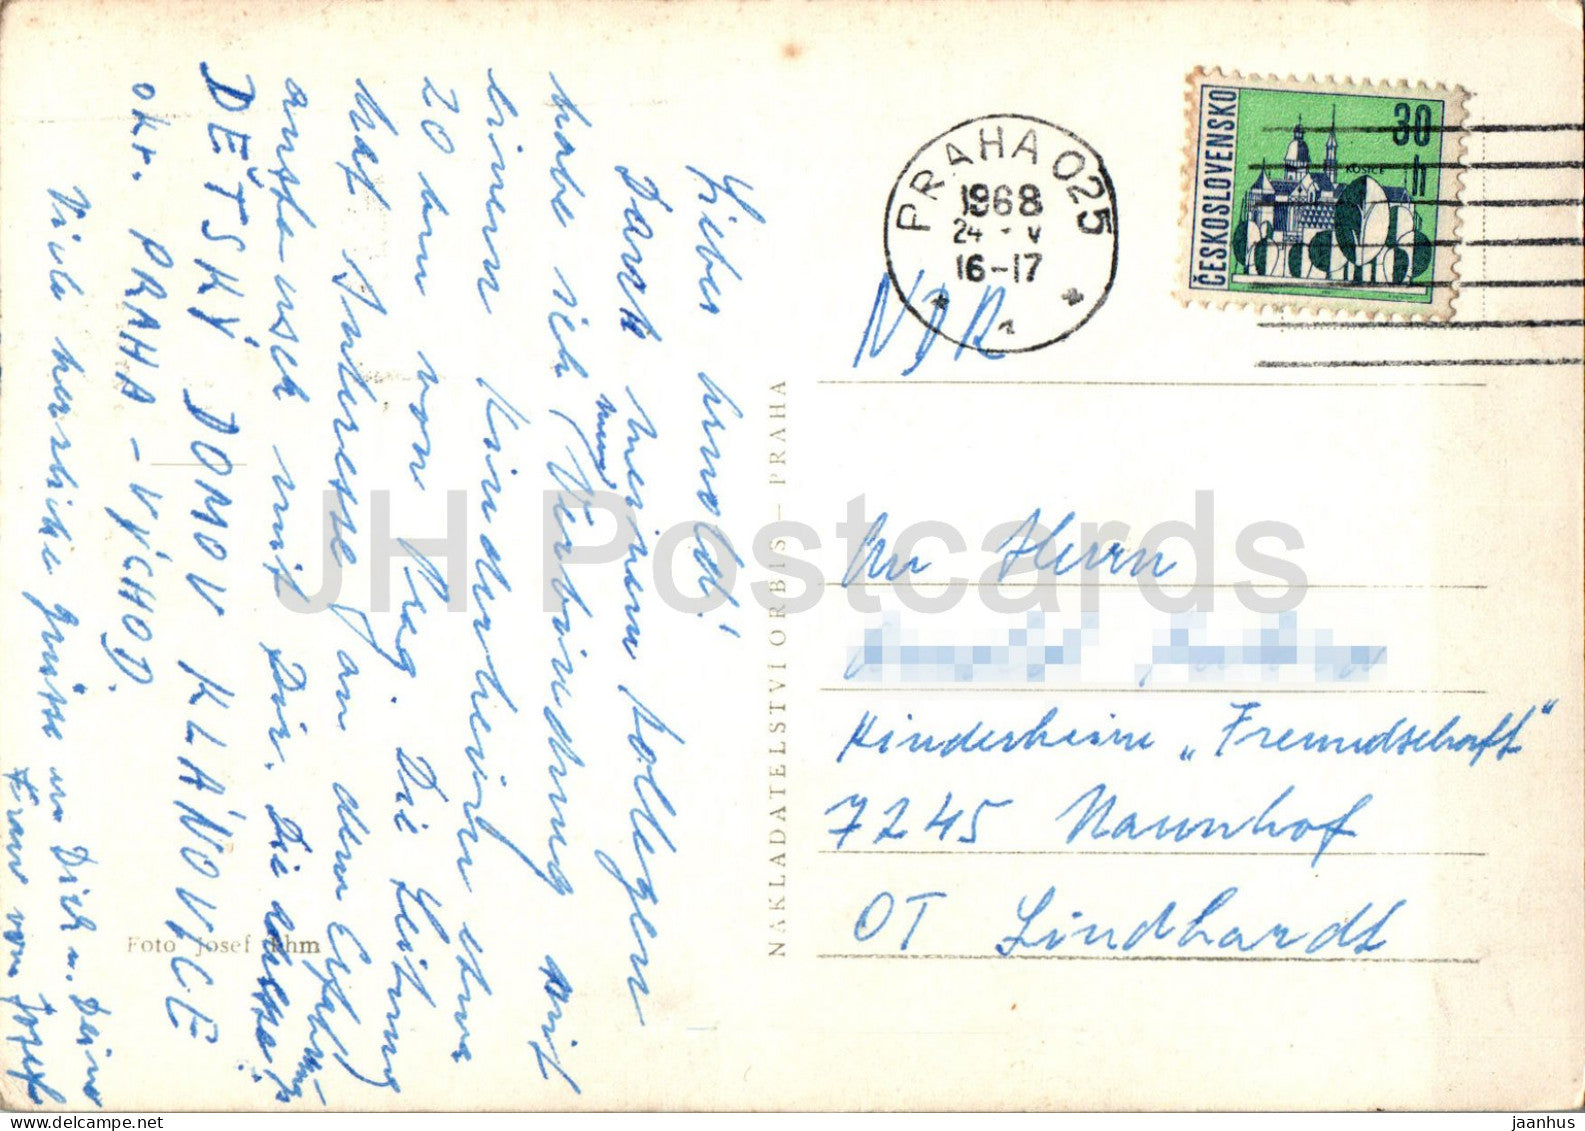 Lieber Arnold!
Dank meinem Kollegen
habe ich nun Verbindung mit
einem Kinderheim etwa
20 km von Prag. Die Leitung
hat Interesse an dem Erfahrungs-
austausch mit Dir. Die Adresse:
DĚTSKÝ DOMOV KLÁNOVICE
okr. PRAHA - VÝCHOD.
Viele herzliche Grüsse an Dich u. Deine
Frau von Josef
Foto Josef Ehm
NAKLADATELSTVI ORBIS - PRAHA
PRAHA 025
1968
24 V
16-17
ČESKOSLOVENSKO
30 h
KOŠICE
NDR
An Herrn
Kinderheim „Freundschaft"
7245 Naunhof
OT Lindhardt
JH Postcards
jaanhus